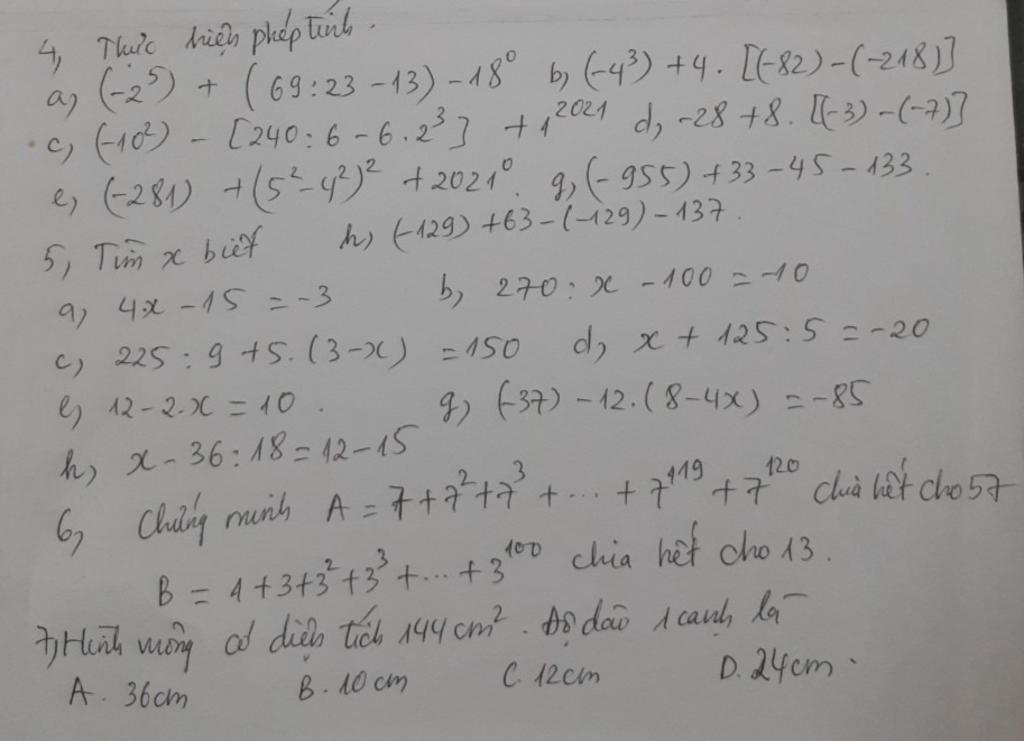 4, Thực hiện phép tính.
a, (-2⁵) + (69:23-13) - 18⁰ b, (-4³) + 4. [(-82)-(-218)]
c, (-10²) - [240:6-6.2³] + 1²⁰²¹ d, -28+8. [(-3)-(-7)]
e, (-281) + (5²-4²)² + 2021⁰. g, (-955)+33-45-133.
h, (-129)+63-(-129)-137.
5, Tìm x biết
a, 4.x-15 = -3 b, 270: x -100 = -10
c, 225: 9 +5. (3-x) = 150 d, x + 125:5 = -20
e, 12-2.x = 10. g, (-37) -12.(8-4x) = -85
h, x-36:18 = 12-15
6, Chứng minh A = 7+7²+7³ + ... + 7¹¹⁹ + 7¹²⁰ chia hết cho 57
B = 1+3+3²+3³+...+3¹⁰⁰ chia hết cho 13.
7, Hình vuông có diện tích 144cm². Độ dài 1 cạnh là
A. 36cm B. 10cm C. 12cm D. 24cm.